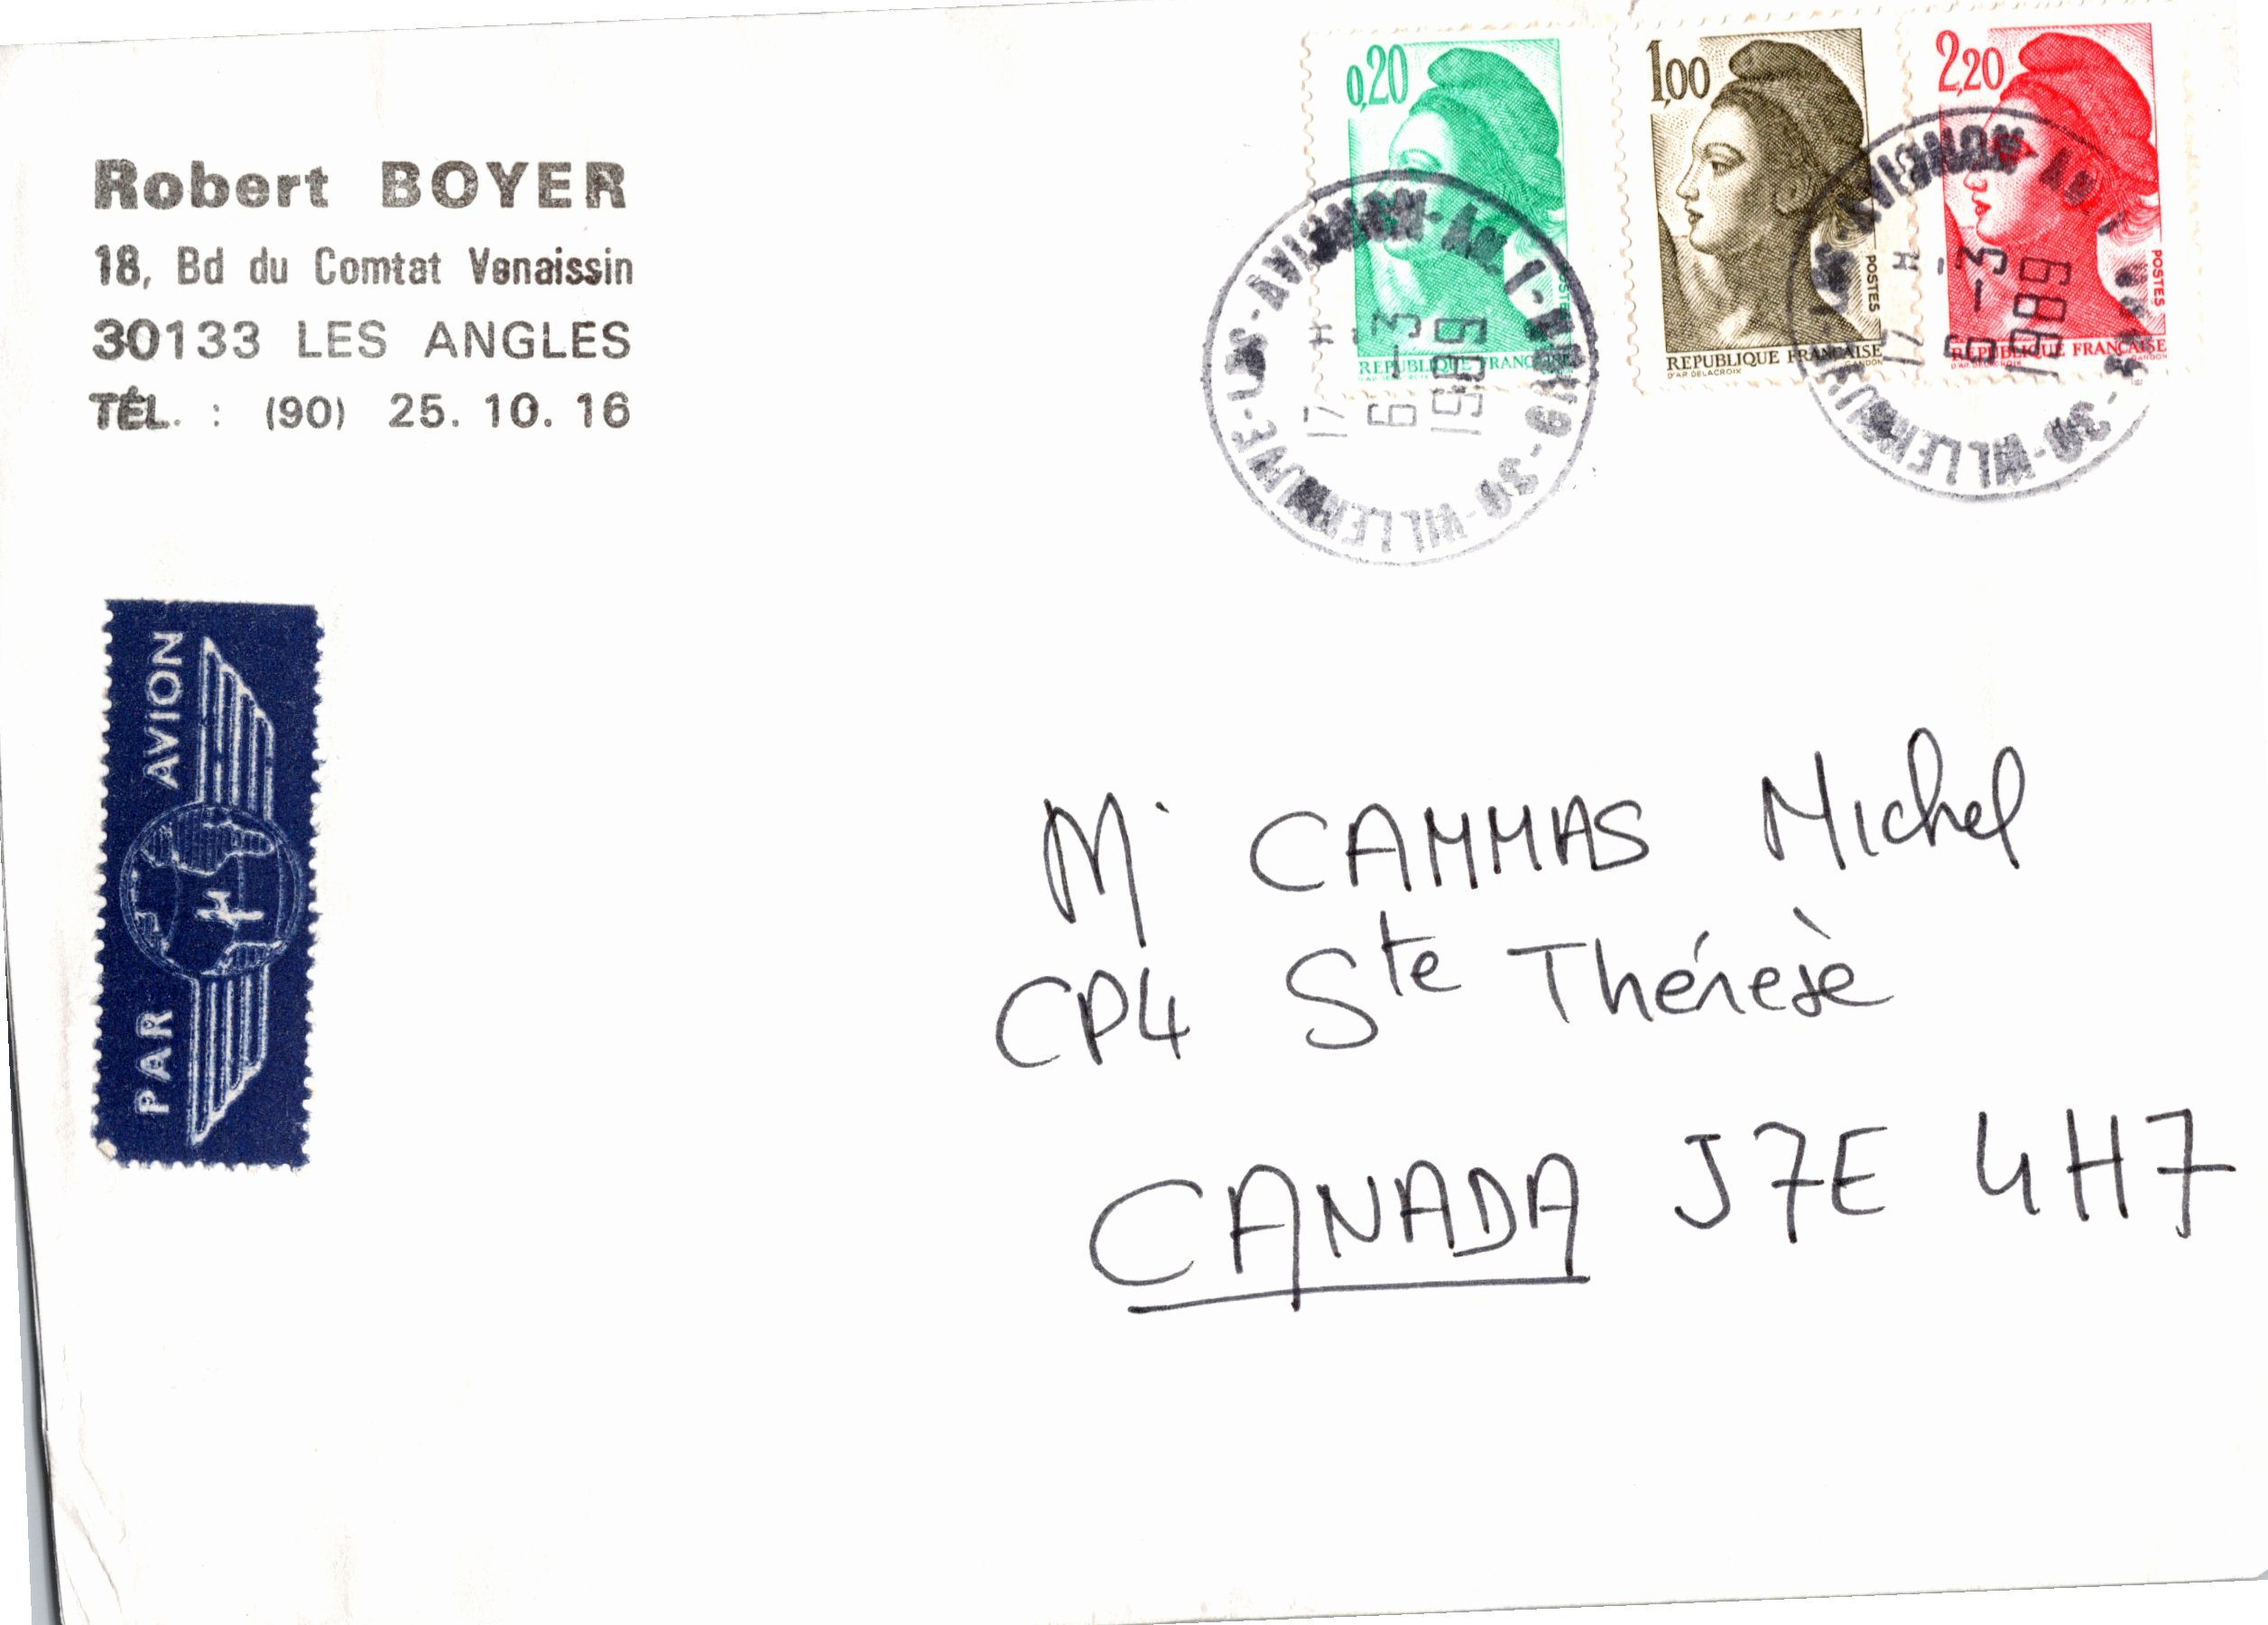 Robert BOYER
18, Bd du Comtat Venaissin
30133 LES ANGLES
TÉL. : (90) 25. 10. 16
0,20
POSTES
REPUBLIQUE FRANÇAISE
1,00
POSTES
REPUBLIQUE FRANÇAISE
D'AP. DELACROIX
GANDON
2,20
POSTES
REPUBLIQUE FRANÇAISE
D'AP. DELACROIX
GANDON
30-VILLENEUVE-LES-AVIGNON
17 H
6-3
1989
30-VILLENEUVE-LES-AVIGNON
17 H
6-3
1989
PAR AVION
M. CAMMAS Michel
CP4 Ste Thérèse
CANADA J7E 4H7